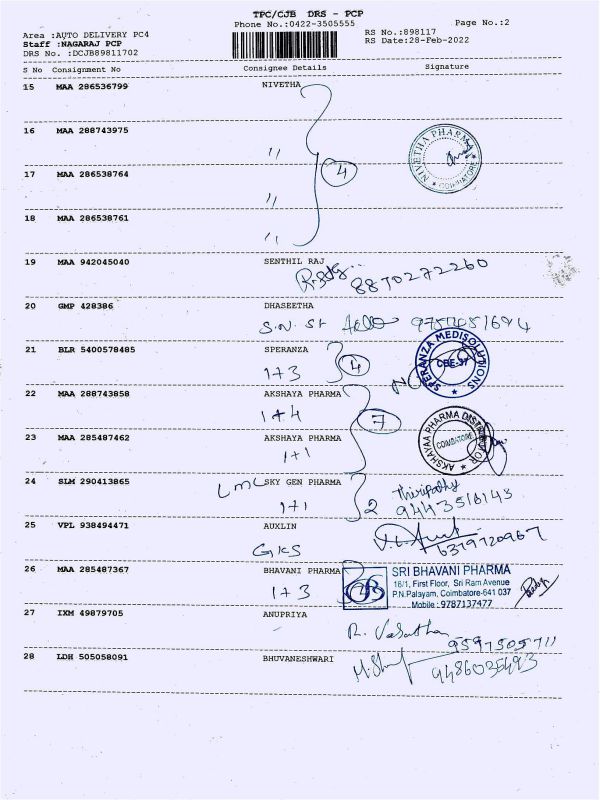 TPC/CJB DRS - PCP
Phone No.:0422-3505555
Page No.:2
Area :AUTO DELIVERY PC4
RS No.:898117
Staff :NAGARAJ PCP
RS Date:28-Feb-2022
DRS No. :DCJB89811702
S No Consignment No Consignee Details Signature
15 MAA 286536799 NIVETHA
16 MAA 288743975
〃
NIVETHA PHARMA
COIMBATORE
17 MAA 286538764
4
〃
18 MAA 286538761
〃
19 MAA 942045040 SENTHIL RAJ
8870272260
20 GMP 428386 DHASEETHA
S.N. St
21 BLR 5400578485 SPERANZA
1+3 4
SPERANZA MEDISOLUTIONS
CBE-37
22 MAA 288743858 AKSHAYA PHARMA
1+4 7
AKSHAYAA PHARMA DISTRIBUTOR
COIMBATORE
23 MAA 285487462 AKSHAYA PHARMA
1+1
24 SLM 290413865 SKY GEN PHARMA
LMC
1+1 2
Thiripathy
9443516143
25 VPL 938494471 AUXLIN
GKS
6379720967
26 MAA 285487367 BHAVANI PHARMA
1+3
SRI BHAVANI PHARMA
16/1, First Floor, Sri Ram Avenue
P.N.Palayam, Coimbatore-641 037
Mobile : 9787137477
27 IXM 49879705 ANUPRIYA
R. Vasanthan
9597505711
28 LDH 505058091 BHUVANESHWARI